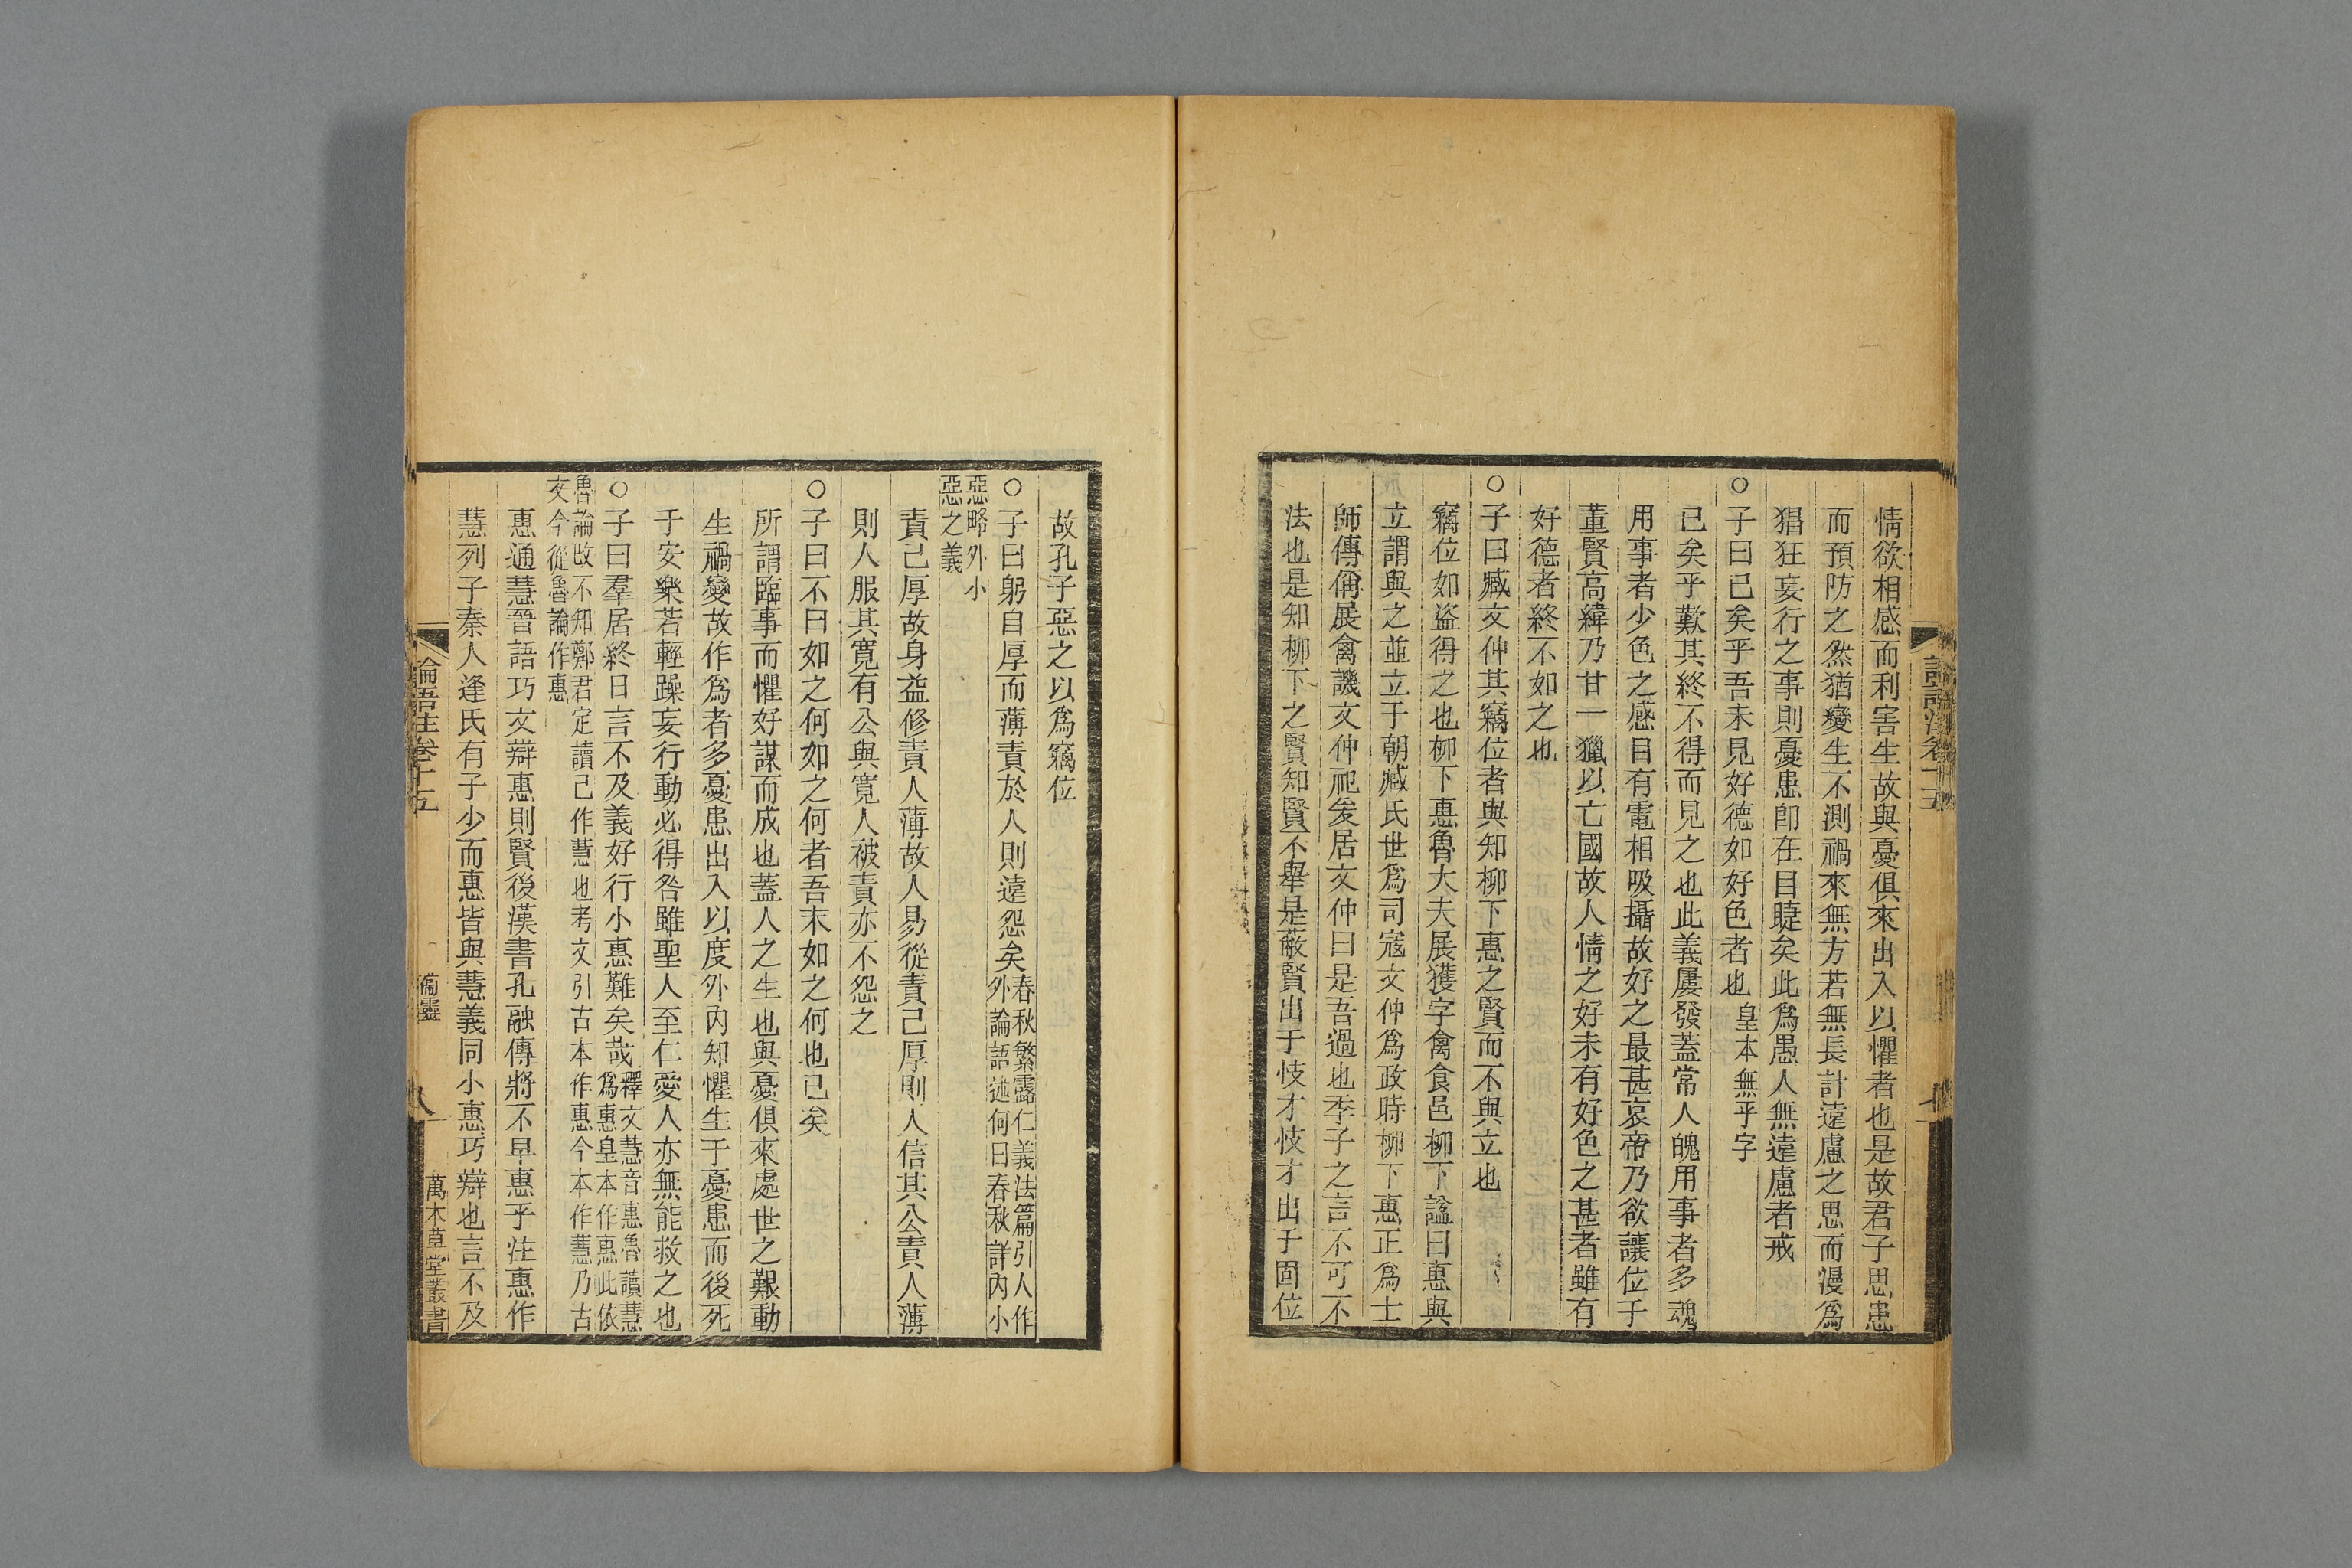 情欲相感而利害生故與憂俱來出入以懼者也是故君子思患
而預防之然猶變生不測禍來無方若無長計遠慮之思而漫爲
猖狂妄行之事則憂患卽在目睫矣此爲愚人無遠慮者戒
○子曰已矣乎吾未見好德如好色者也皇本無乎字
已矣乎歎其終不得而見之也此義屢發蓋常人魄用事者多魂
用事者少色之感目有電相吸攝故好之最甚哀帝乃欲讓位于
董賢高緯乃甘一獵以亡國故人情之好未有好色之甚者雖有
好德者終不如之也
○子曰臧文仲其竊位者與知柳下惠之賢而不與立也
竊位如盜得之也柳下惠魯大夫展獲字禽食邑柳下諡曰惠與
立謂與之並立于朝臧氏世爲司寇文仲爲政時柳下惠正爲士
師傳稱展禽譏文仲祀爰居文仲曰是吾過也季子之言不可不
法也是知柳下之賢知賢不舉是蔽賢出于忮才忮才出于固位
論語注卷十五
故孔子惡之以爲竊位
○子曰躬自厚而薄責於人則遠怨矣春秋繁露仁義法篇引人作
外論語述何曰春秋詳內小
惡略外小
惡之義
責己厚故身益修責人薄故人易從責己厚則人信其公責人薄
則人服其寬有公與寬人被責亦不怨之
○子曰不曰如之何如之何者吾末如之何也已矣
所謂臨事而懼好謀而成也蓋人之生也與憂俱來處世之艱動
生禍變故作爲者多憂患出入以度外內知懼生于憂患而後死
于安樂若輕躁妄行動必得咎雖聖人至仁愛人亦無能救之也
○子曰羣居終日言不及義好行小惠難矣哉釋文慧音惠魯讀慧
爲惠皇本作惠此依
魯論改不知鄭君定讀己作慧也考文引古本作惠今本作慧乃古
文今從魯論作惠
惠通慧晉語巧文辯惠則賢後漢書孔融傳將不早惠乎注惠作
慧列子秦人逢氏有子少而惠皆與慧義同小惠巧辯也言不及
論語注卷十五
衞靈
八
萬木草堂叢書